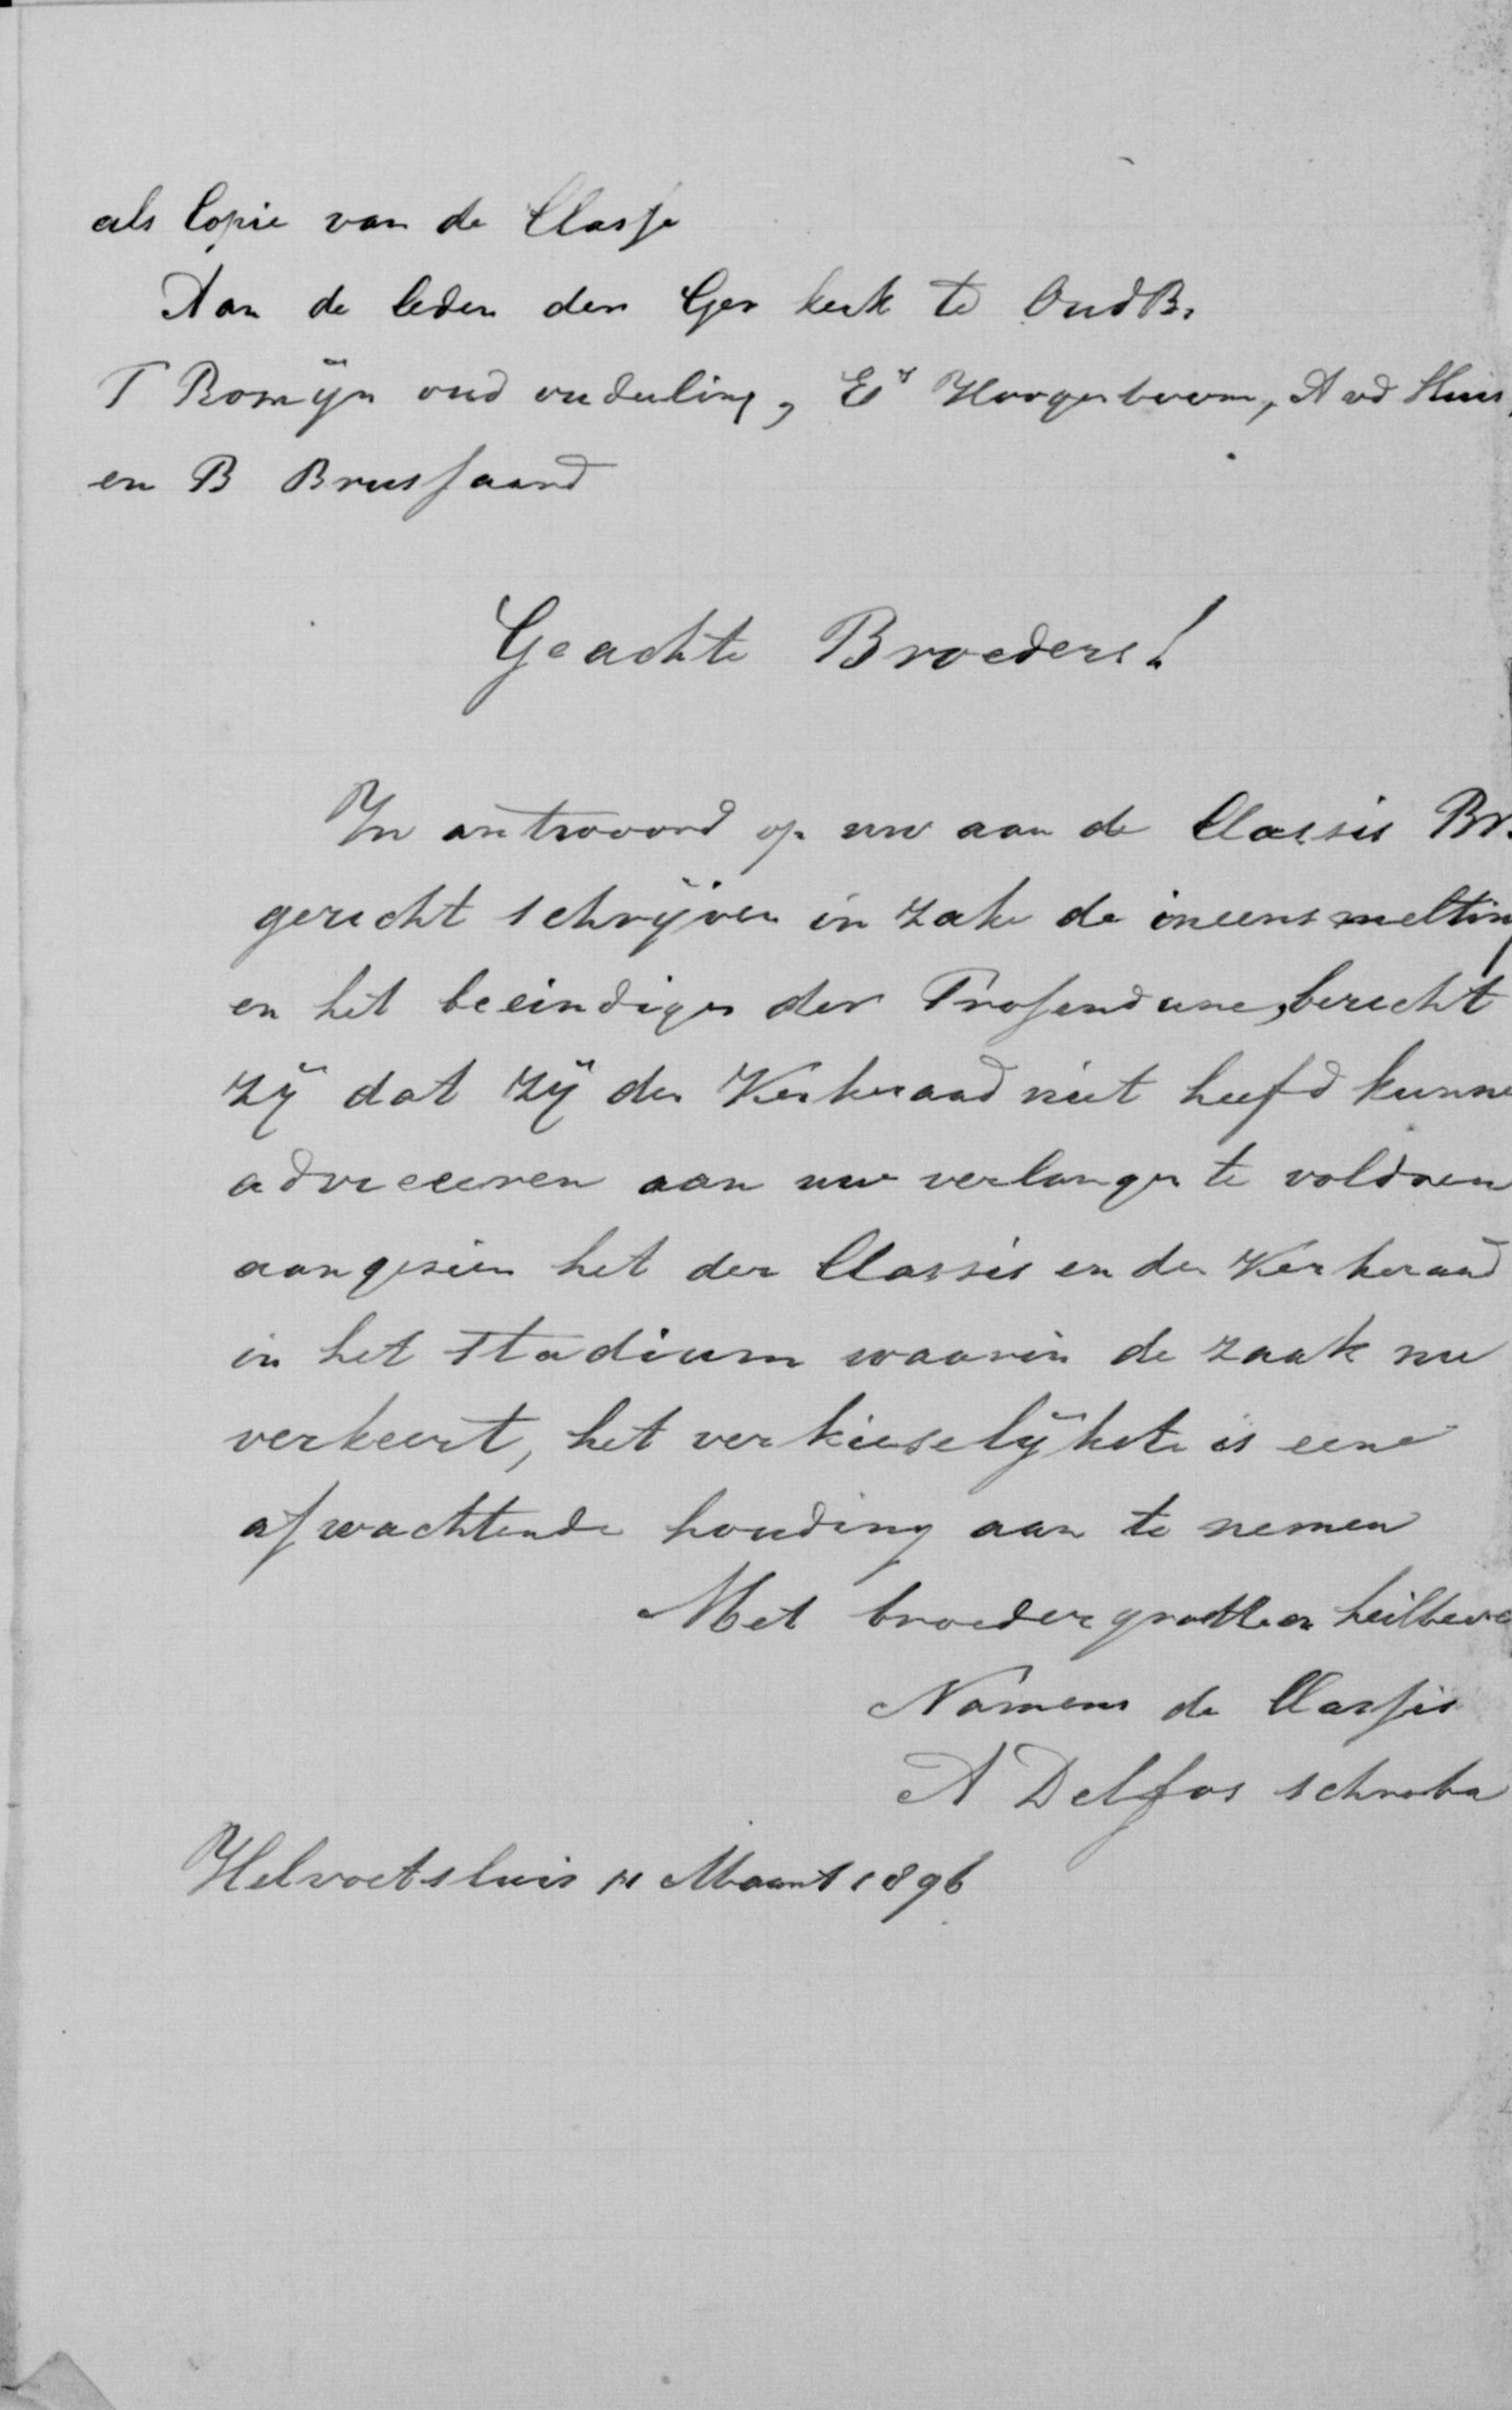 als Copie van de Classe
Aan de leden der Ger kerk te OudB.
T Romijn oud ouderling, Es Hoogerboom, A vd Huis,
en B Brussaard
Geachte Broeders!
In antwoord op uw aan de Classis Br.
gericht schrijven in zake de ineensmelting
en het beeindigen der Prosendure, bericht
zij dat zij den Kerkeraad niet heefd kunne
adviceeren aan uw verlangen te voldoen
aangesien het der Classis en den Kerkeraad
in het stadium waarin de zaak nu
verkeert, het verkieselijkste is eene
afwachtende houding aan te nemen
Met broedergroeten heilbeve
Namens de Classis
A Delfos schreba
Helvoetsluis 11 Maart 1896